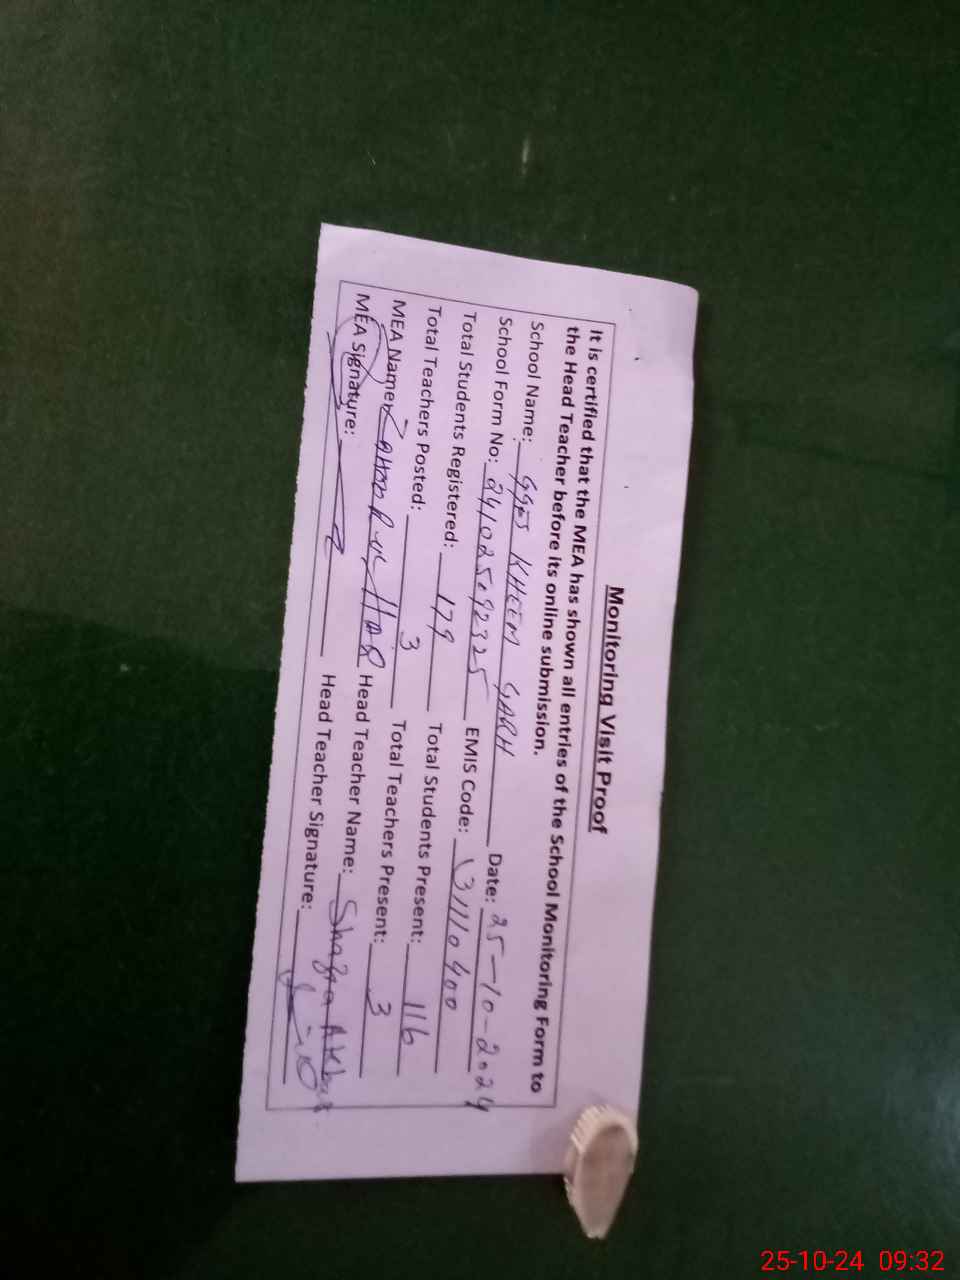 Monitoring Visit Proof
It is certified that the MEA has shown all entries of the School Monitoring Form to
the Head Teacher before its online submission.
School Name: GGES KHEEM GARH Date: 25-10-2024
School Form No: 241025092325 EMIS Code: 31110400
Total Students Registered: 179 Total Students Present: 116
Total Teachers Posted: 3 Total Teachers Present: 3
MEA Name: Head Teacher Name: Shazia Akbar
MEA Signature: Head Teacher Signature:
25-10-24 09:32